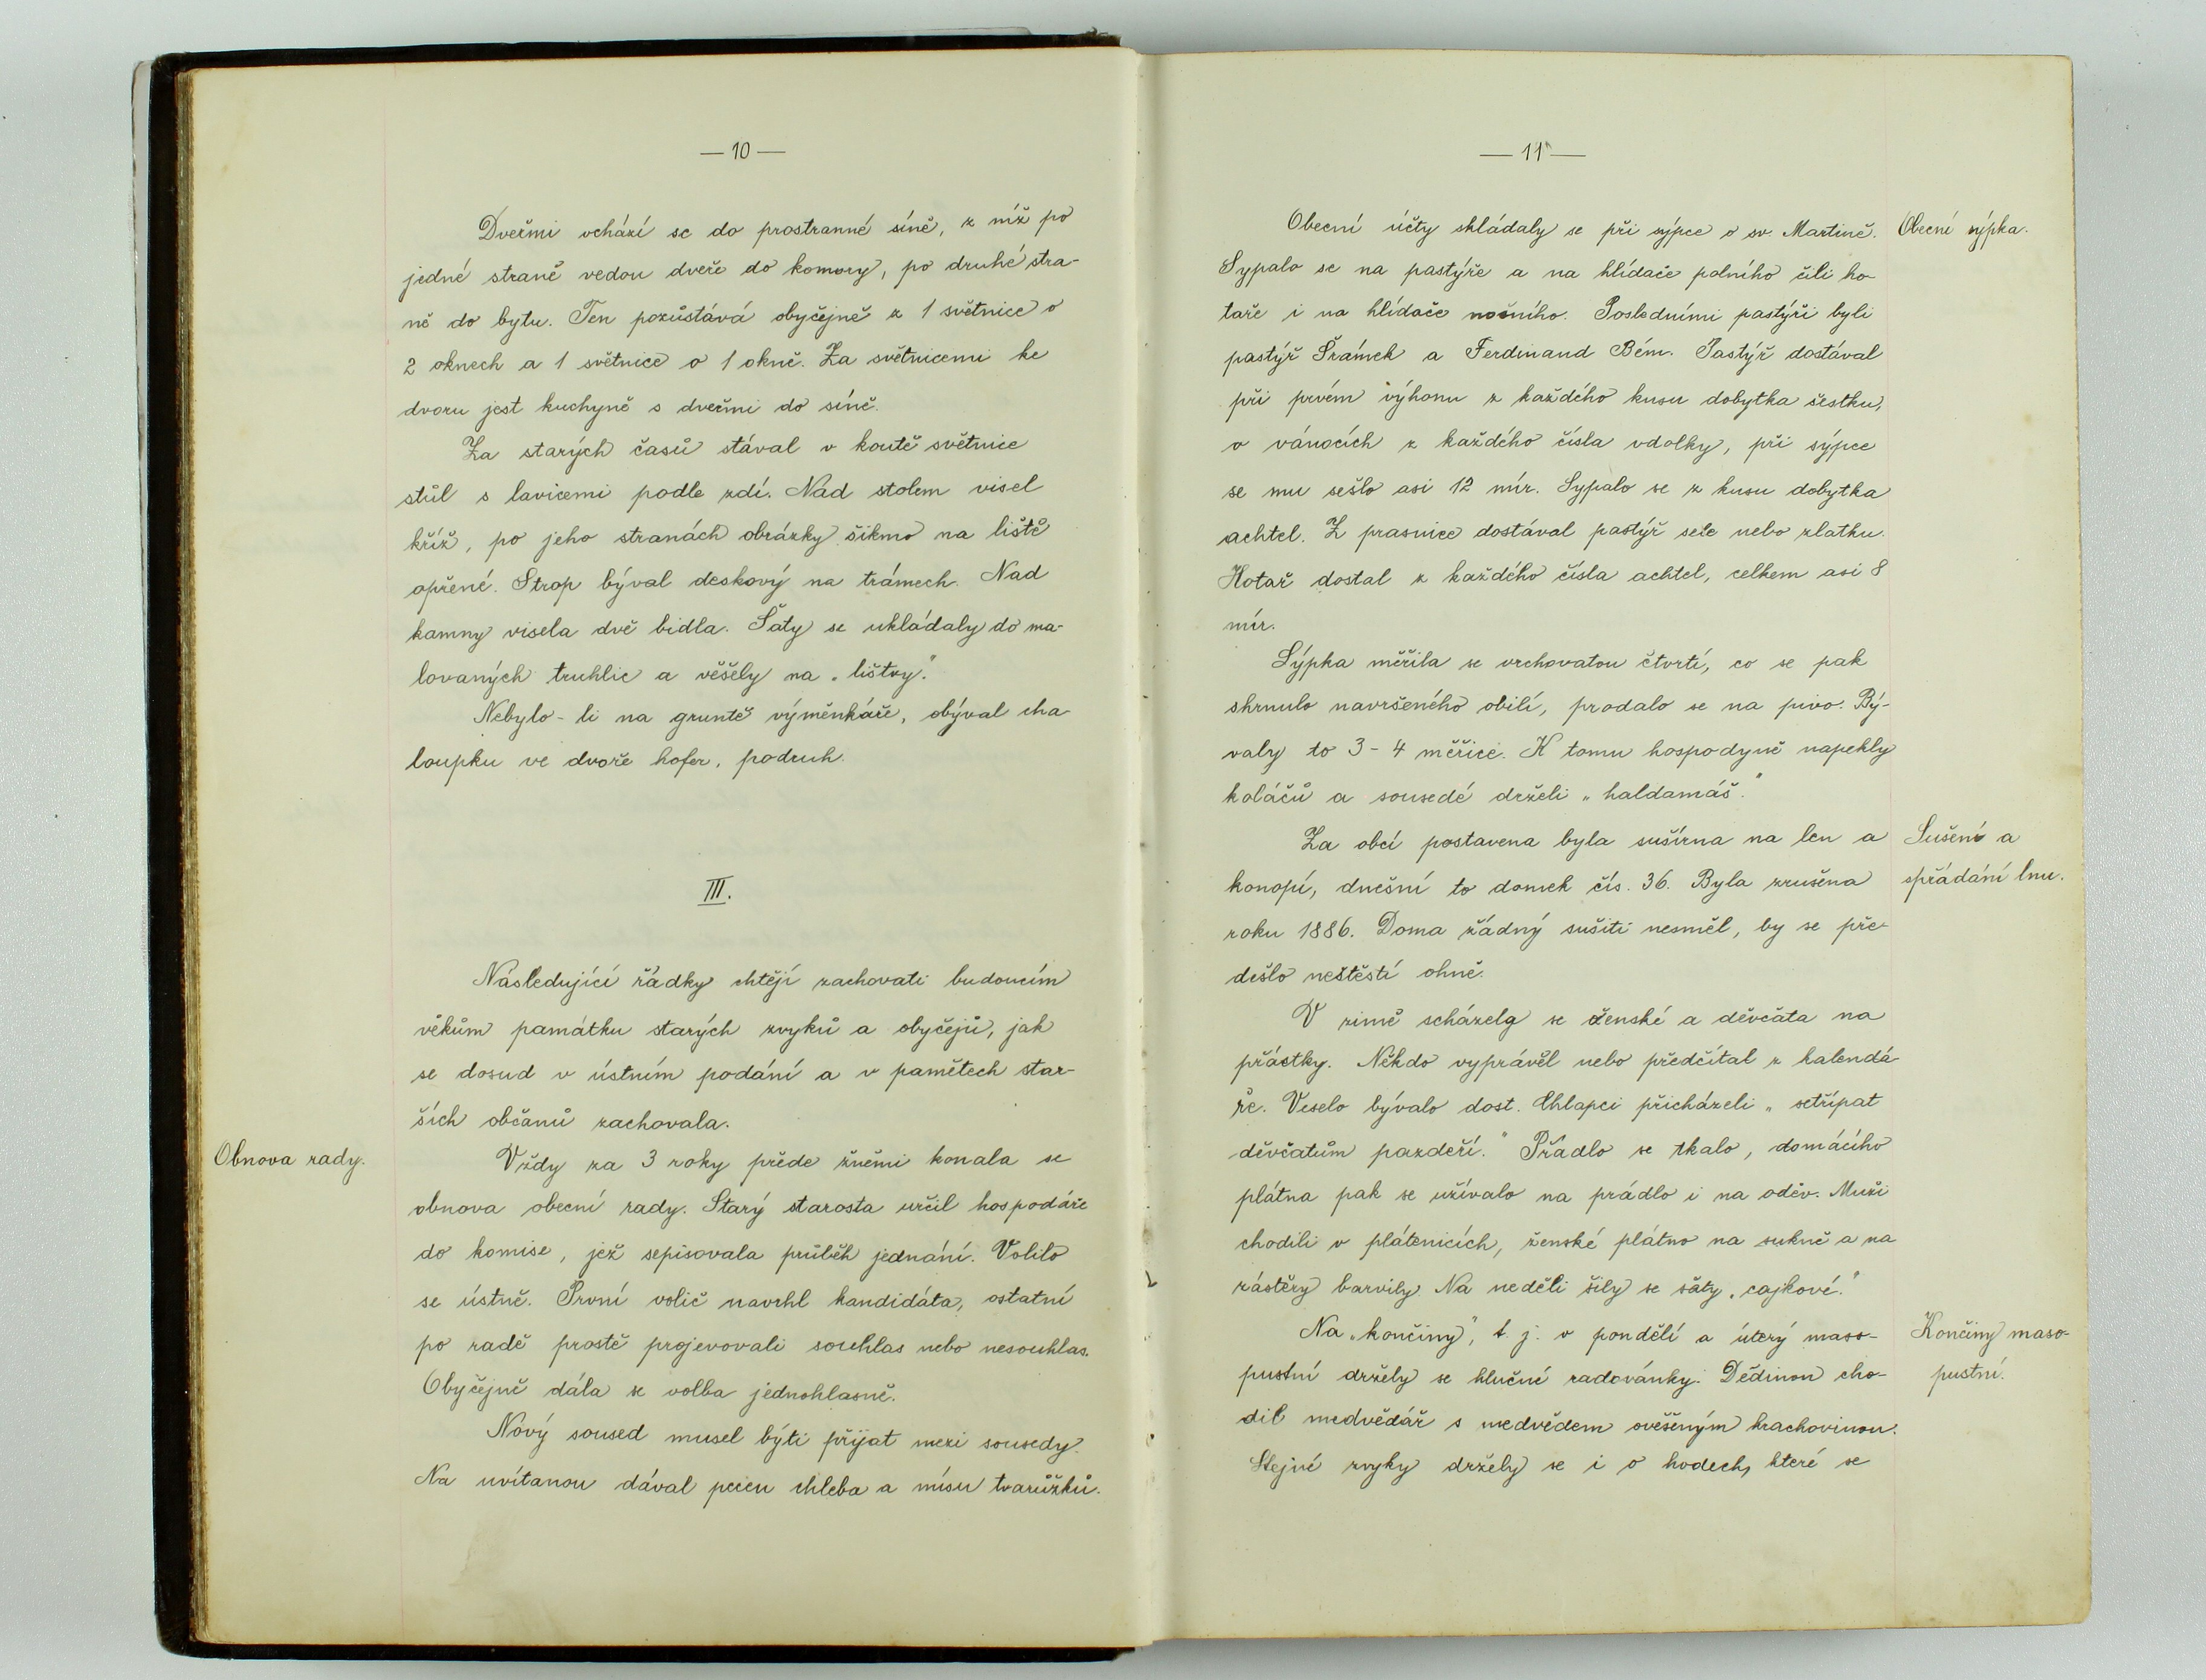 — 10 —
Dveřmi vchází se do prostranné síně, z níž po
jedné straně vedou dveře do komory, po druhé stra-
ně do bytu. Ten pozůstává obyčejně z 1 světnice o
2 oknech a 1 světnice o 1 okně. Za světnicemi ke
dvoru jest kuchyně s dveřmi do síně.
Za starých časů stával v koutě světnice
stůl s lavicemi podle zdí. Nad stolem visel
kříž, po jeho stranách obrázky šikmo na liště
opřené. Strop býval deskový na trámech. Nad
kamny visela dvě bidla. Šaty se ukládaly do ma-
lovaných truhlic a věšely na „lištvy."
Nebylo-li na gruntě výměnkáře, obýval cha-
loupku ve dvoře hofer, podruh.
III.
Následující řádky chtějí zachovati budoucím
věkům památku starých zvyků a obyčejů, jak
se dosud v ústním podání a v pamětech star-
ších občanů zachovala.
Obnova rady.
Vždy za 3 roky přede žněmi konala se
obnova obecní rady. Starý starosta určil hospodáře
do komise, jež sepisovala průběh jednání. Volilo
se ústně. První volič navrhl kandidáta, ostatní
po radě prostě projevovali souhlas nebo nesouhlas.
Obyčejně dála se volba jednohlasně.
Nový soused musel býti přijat mezi sousedy.
Na uvítanou dával pecen chleba a mísu tvarůžků.
— 11 —
Obecní účty skládaly se při sýpce o sv. Martině.
Obecní sýpka.
Sypalo se na pastýře a na hlídače polního čili ho-
taře i na hlídače nočního. Posledními pastýři byli
pastýř Šrámek a Ferdinand Bém. Pastýř dostával
při prvém výhonu z každého kusu dobytka šestku,
o vánocích z každého čísla vdolky, při sýpce
se mu sešlo asi 12 mír. Sypalo se z kusu dobytka
achtel. Z prasnice dostával pastýř sele nebo zlatku.
Hotař dostal z každého čísla achtel, celkem asi 8
mír.
Sýpka měřila se vrchovatou čtvrtí, co se pak
shrnulo navršeného obilí, prodalo se na pivo. Bý-
valy to 3-4 měřice. K tomu hospodyně napekly
koláčů a sousedé drželi „haldamáš."
Za obcí postavena byla sušírna na len a
Sušení a
konopí, dnešní to domek čís. 36. Byla zrušena
spřádání lnu.
roku 1886. Doma žádný sušiti nesměl, by se pře-
dešlo neštěstí ohně.
V zimě scházely se ženské a děvčata na
přástky. Někdo vyprávěl nebo předčítal z kalendá-
ře. Veselo bývalo dost. Chlapci přicházeli „setřípat
děvčatům pazdeří." Přádlo se tkalo, domácího
plátna pak se užívalo na prádlo i na oděv. Muži
chodili v plátenicích, ženské plátno na sukně a na
zástěry barvily. Na neděli šily se šaty „cajkové."
Na „končiny", t. j. v pondělí a úterý maso-
Končiny maso-
pustní držely se hlučné radovánky. Dědinou cho-
pustní.
dil medvědář s medvědem ověšeným hrachovinou.
Stejné zvyky držely se i o hodech, které se